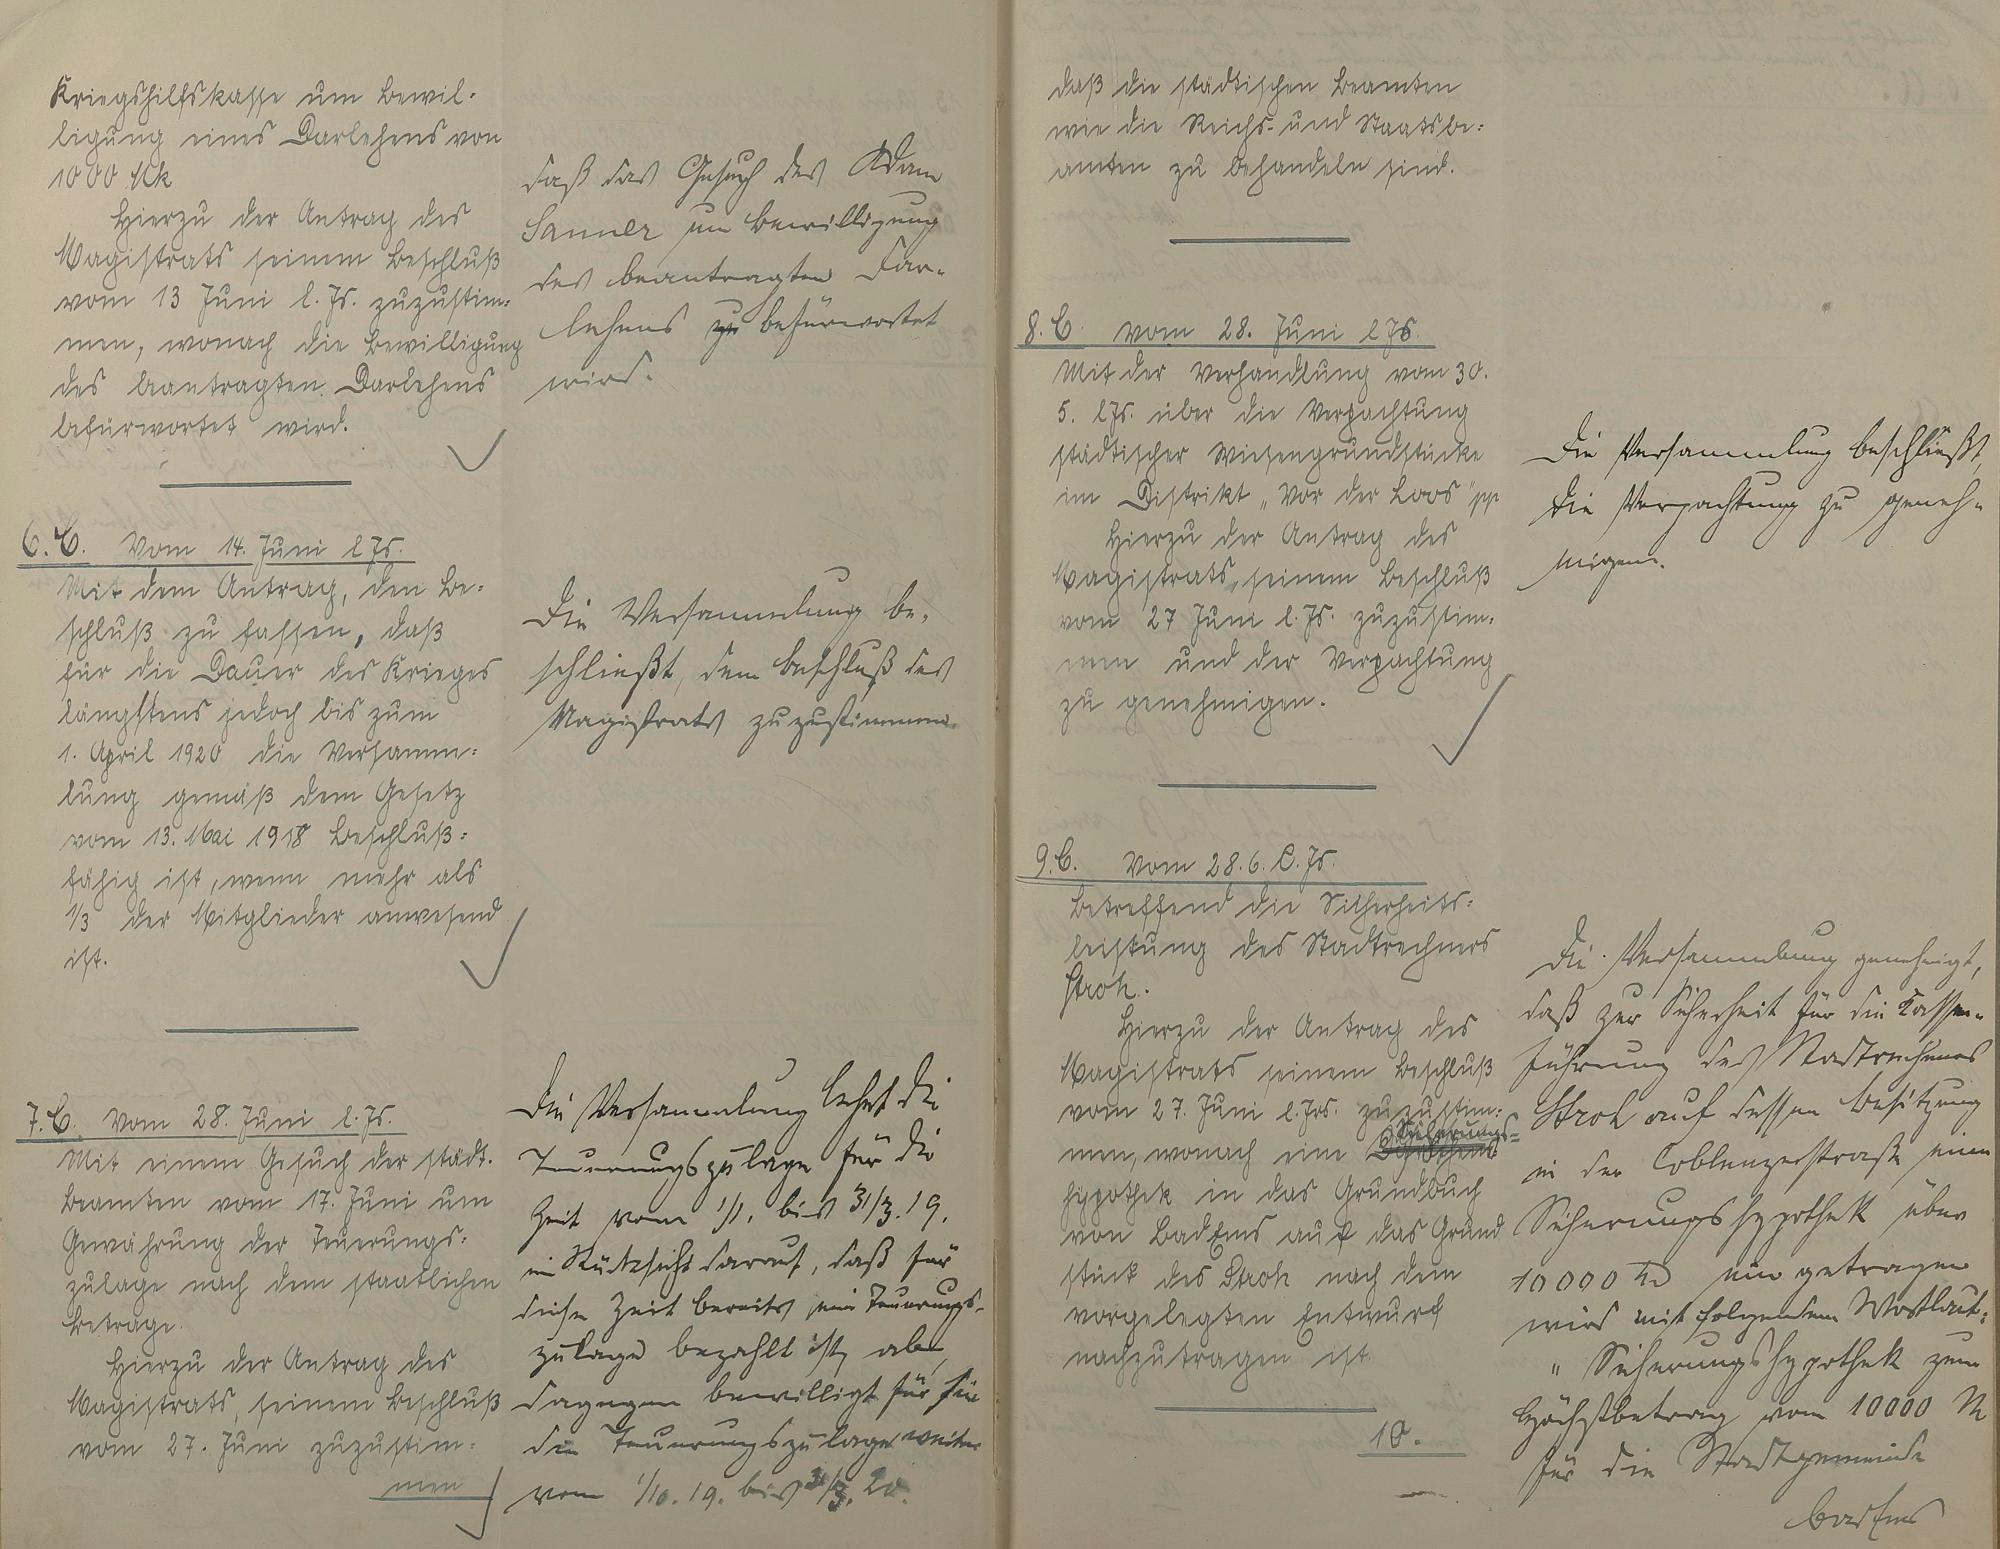 Kriegshilfskasse um Bewil-
ligung eines Darlehens von
1000 Mk
Hierzu der Antrag des
Magistrats seinem Beschluß
vom 13 Juni l. Js. zuzustim-
men, wonach die Bewilligung
des beantragten Darlehens
befürwortet wird.
6. C. Vom 14. Juni l Js.
Mit dem Antrag, den Be-
schluß zu fassen, daß
für die Dauer des Krieges
längstens jedoch bis zum
1. April 1920 die Versamm-
lung gemäß dem Gesetz
vom 13. Mai 1918 beschluß-
fähig ist, wenn mehr als
1/3 der Mitglieder anwesend
ist.
7. C. Vom 28. Juni l. Js.
Mit einem Gesuch der städt.
Beamten vom 17. Juni um
Gewährung der Teuerungs-
zulage nach dem staatlichen
Betrage.
Hierzu der Antrag des
Magistrats, seinem Beschluß
vom 27. Juni zuzustim-
men
daß das Gesuch des Adam
Sanner um Bewilligung
des beantragten Dar-
lehens zu befürwortet
wird.
Die Versammlung be-
schließt, dem Beschluß des
Magistrats zuzustimmen.
Die Versammlung lehnt die
Teuerungszulage für die
Zeit vom 1/1. bis 31/3. 19.
in Rücksicht darauf, daß für
diese Zeit bereits eine Teuerungs-
zulage bezahlt ist, ab,
dagegen bewilligt für sie
die Teuerungszulage weiter
vom 1/10. 19. bis 31/3. 20.
daß die städtischen Beamten
wie die Reichs- und Staatsbe-
amten zu behandeln sind.
8. C. Vom 28. Juni l Js.
Mit der Verhandlung vom 30.
5. l Js. über die Verpachtung
städtischer Wiesengrundstücke
im Distrikt „Vor der Loos" pp
Hierzu der Antrag des
Magistrats, seinem Beschluß
vom 27 Juni l. Js. zuzustim-
men und der Verpachtung
zu genehmigen.
9. C. Vom 28. 6. l. Js.
Betreffend die Sicherheits-
leistung des Stadtrechners
Stroh.
Hierzu der Antrag des
Magistrats seinem Beschluß
vom 27. Juni l. Jrs. zuzustim-
men, wonach eine Sicherungs-
hypothek in das Grundbuch
von Bad Ems auf das Grund
stück des Stroh nach dem
vorgelegten Entwurf
nachzutragen ist
10.
Die Versammlung beschließt,
die Verpachtung zu geneh-
migen.
Die Versammlung genehmigt,
daß zur Sicherheit für die Kassen-
führung des Stadtrechners
Stroh auf dessen Besitzung
in der Coblenzerstraße eine
Sicherungshypothek über
10000 M eingetragen
wird mit folgendem Wortlaut:
„ Sicherungshypothek zum
Höchstbetrag von 10000 M
für die Stadtgemeinde
Bad Ems